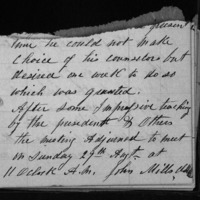 time he could not make
choice of his counselor but
desired one week to do so
which was granted.
After some Impressive teaching
by the president & Others
the meeting Adjourned to meet
on Sunday 29th Augt. at
11 Oclock A.M. John Mills